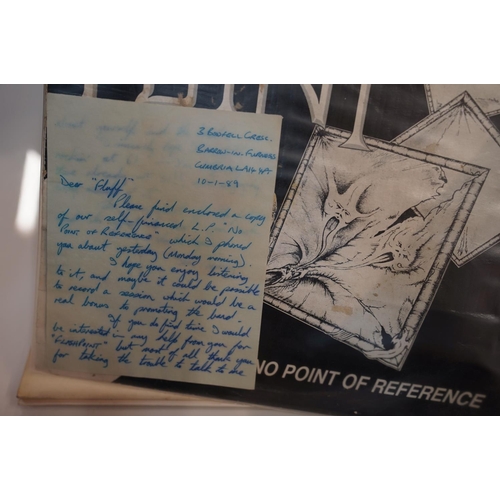 3 Boswell Cresc.
Barrow-in-Furness
Cumbria LA14
10-1-89
Dear "Fluff"
Please find enclosed a copy
of our self-financed L.P. "No
Point of Reference" which I phoned
you about yesterday (Monday morning).
I hope you enjoy listening
to it, and maybe it could be possible
to record a session which would be a
real bonus to promoting the band.
If you do find time I would
be interested in any help from you for
"Flashpoint" but most of all thank you
for taking the trouble to talk to me
NO POINT OF REFERENCE